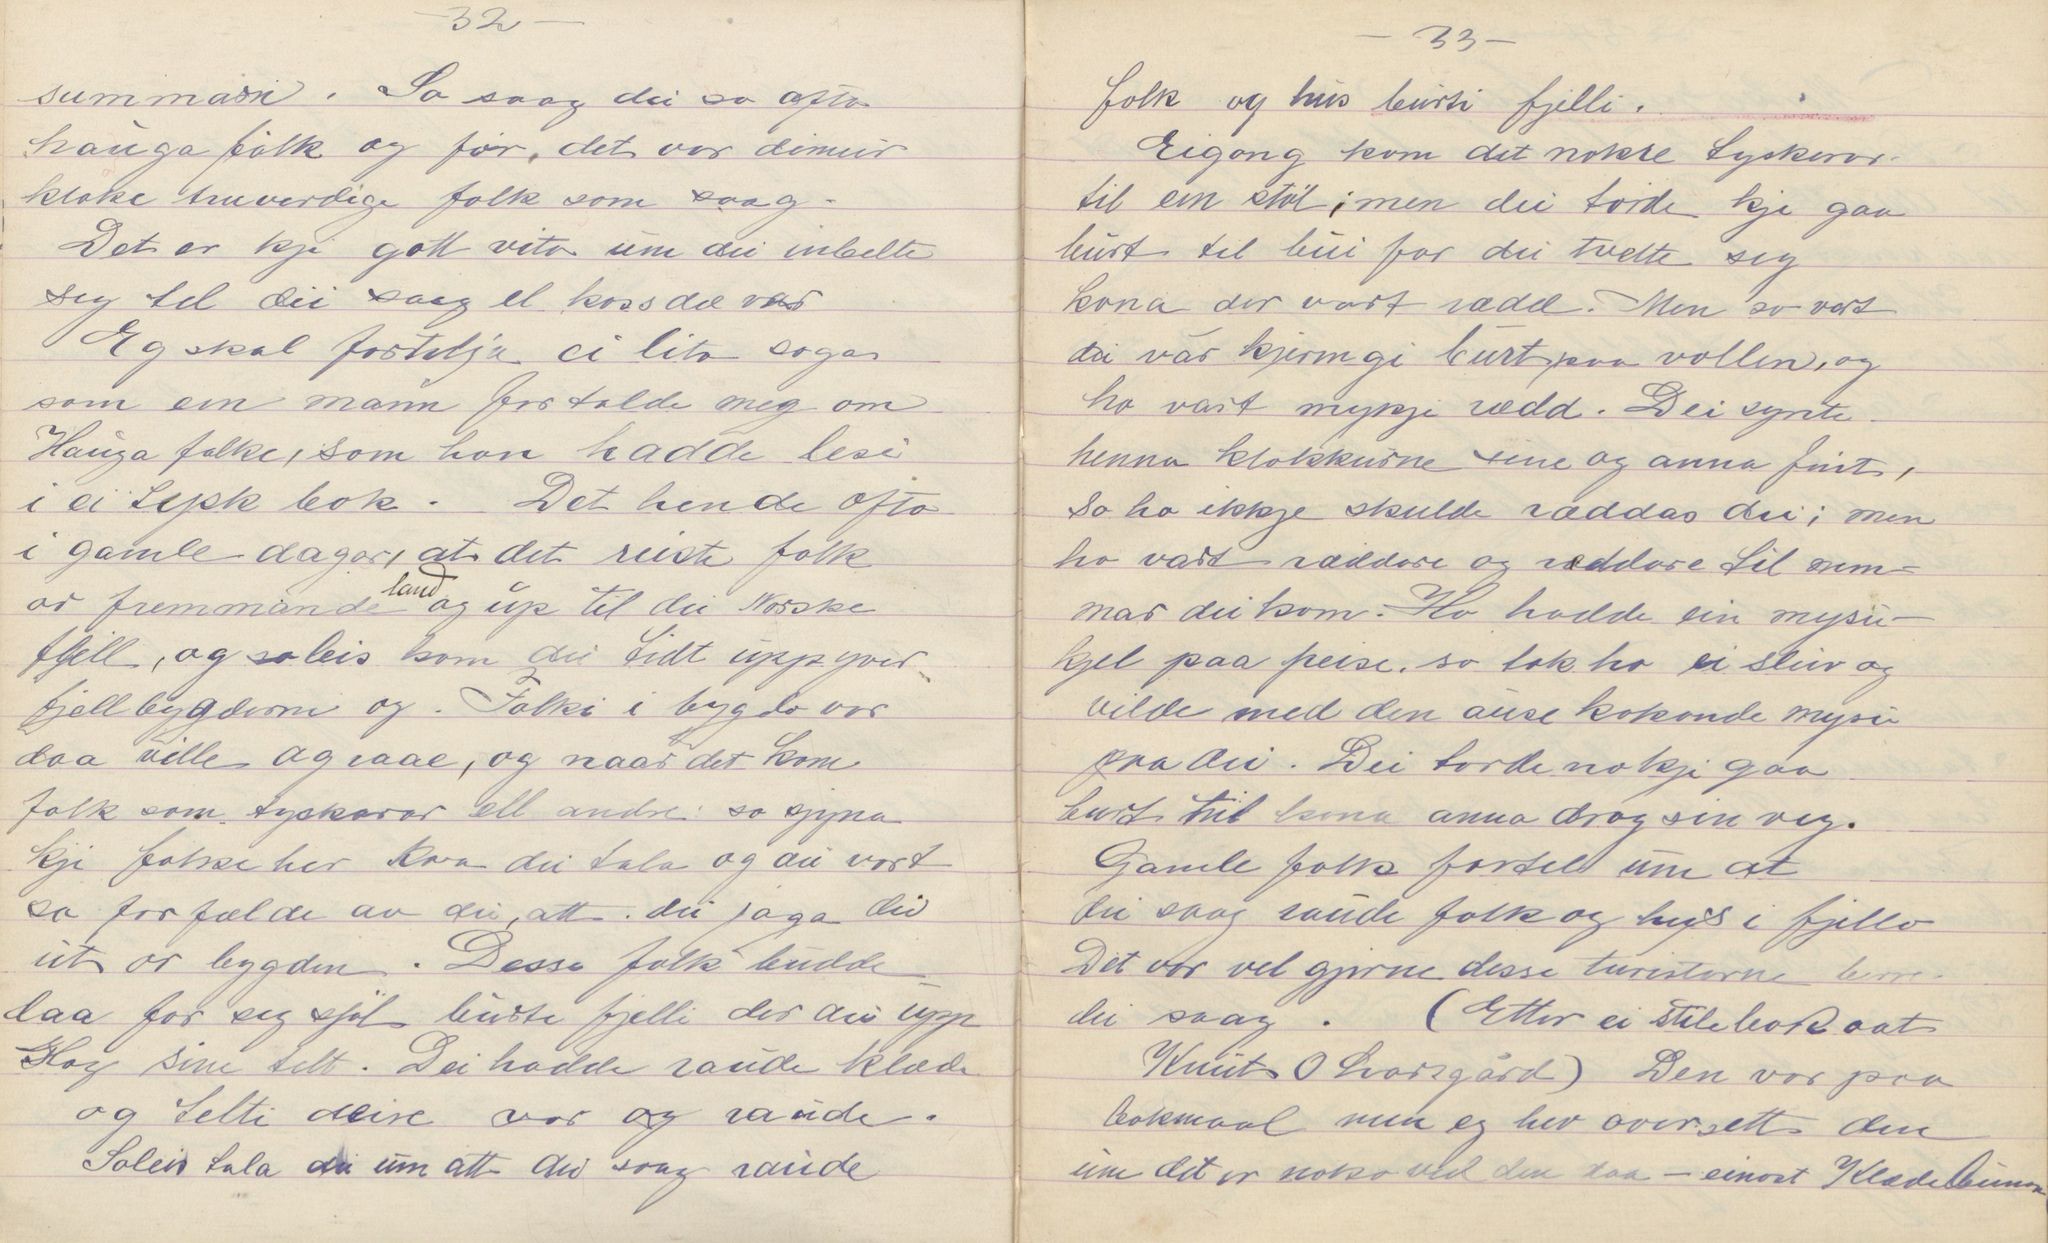 - 32 -
summarn. So saag dei so ofta
hauga folk og før, det var dimeir
kloke truverdige folk som saag.
Det er kji gott vita um dei inbelte
seg tel dei saag el koss dæ var
Eg skal fortelja ei lita soga
som ein mann fortalde meg om
Hauga folke, som han hadde lesi
i ei tysk bok. Det hende ofta
i gamle dagar, at det reiste folk
or fremmande land og up til dei Norske
fjell, og soleis kom dei tidt upp yver
fjellbygderne og. Folki i bygdo var
daa ville og raae, og naar det kom
folk som tyskarar ell andre so sjyna
kji folke her kva dei tala og dei vart
so forfælde av dei, att dei jaga dei
ut or bygden. Desse folk budde
daa for seg sjøl burte fjelli der dei upp
slog sine telt. Dei hadde raude klæde
og telti deire var og raude.
Soleis tala dei um att dei saag raude
- 33 -
folk og hus burti fjelli.
Eigong kom det nokre tyskarar
til ein støl; men dei torde kji gaa
burt til bui for dei tvelte seg
kona der vart rædd. Men so vart
dei vár kjerringi burt paa vollen, og
ho vart mykje rædd. Dei synte
henna klokkurne sine og anna fint,
so ho ikkje skulde ræddas dei; men
ho vart ræddare og ræddare til nem-
mar dei kom. Ho hadde ein mysu-
kjel paa peise. so tok ho ei sleiv og
vilde med den ause kokande mysu
paa dei. Dei torde no kji gaa
burt til kona anna drog sin veg.
Gamle folk fortel um at
dei saag raude folk og hus i fjello
Det var vel gjerne desse turistarne berre
dei saag. (Etter ei stilebok aat
Knut O Svarsgård) Den var paa
bokmaal men eg hev oversett den
um det er noko ved den daa - einast Klædebunan